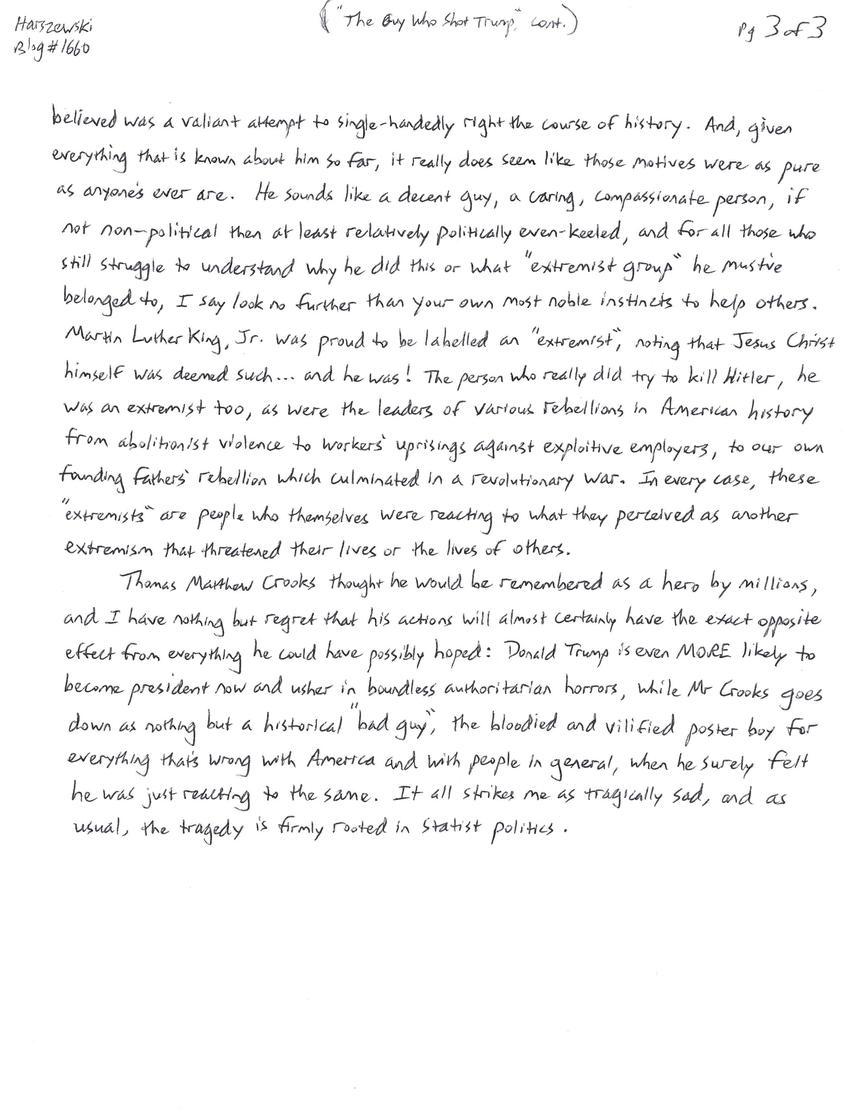 Harszewski
Blog #1660
("The Guy Who Shot Trump," cont.)
Pg 3 of 3
believed was a valiant attempt to single-handedly right the course of history. And, given
everything that is known about him so far, it really does seem like those motives were as pure
as anyone's ever are. He sounds like a decent guy, a caring, compassionate person, if
not non-political then at least relatively politically even-keeled, and for all those who
still struggle to understand why he did this or what "extremist group" he must've
belonged to, I say look no further than your own most noble instincts to help others.
Martin Luther King, Jr. was proud to be labelled an "extremist", noting that Jesus Christ
himself was deemed such... and he was! The person who really did try to kill Hitler, he
was an extremist too, as were the leaders of various rebellions in American history
from abolitionist violence to workers' uprisings against exploitive employers, to our own
founding fathers' rebellion which culminated in a revolutionary war. In every case, these
"extremists" are people who themselves were reacting to what they perceived as another
extremism that threatened their lives or the lives of others.
Thomas Matthew Crooks thought he would be remembered as a hero by millions,
and I have nothing but regret that his actions will almost certainly have the exact opposite
effect from everything he could have possibly hoped: Donald Trump is even MORE likely to
become president now and usher in boundless authoritarian horrors, while Mr Crooks goes
down as nothing but a historical "bad guy", the bloodied and vilified poster boy for
everything that's wrong with America and with people in general, when he surely felt
he was just reacting to the same. It all strikes me as tragically sad, and as
usual, the tragedy is firmly rooted in statist politics.